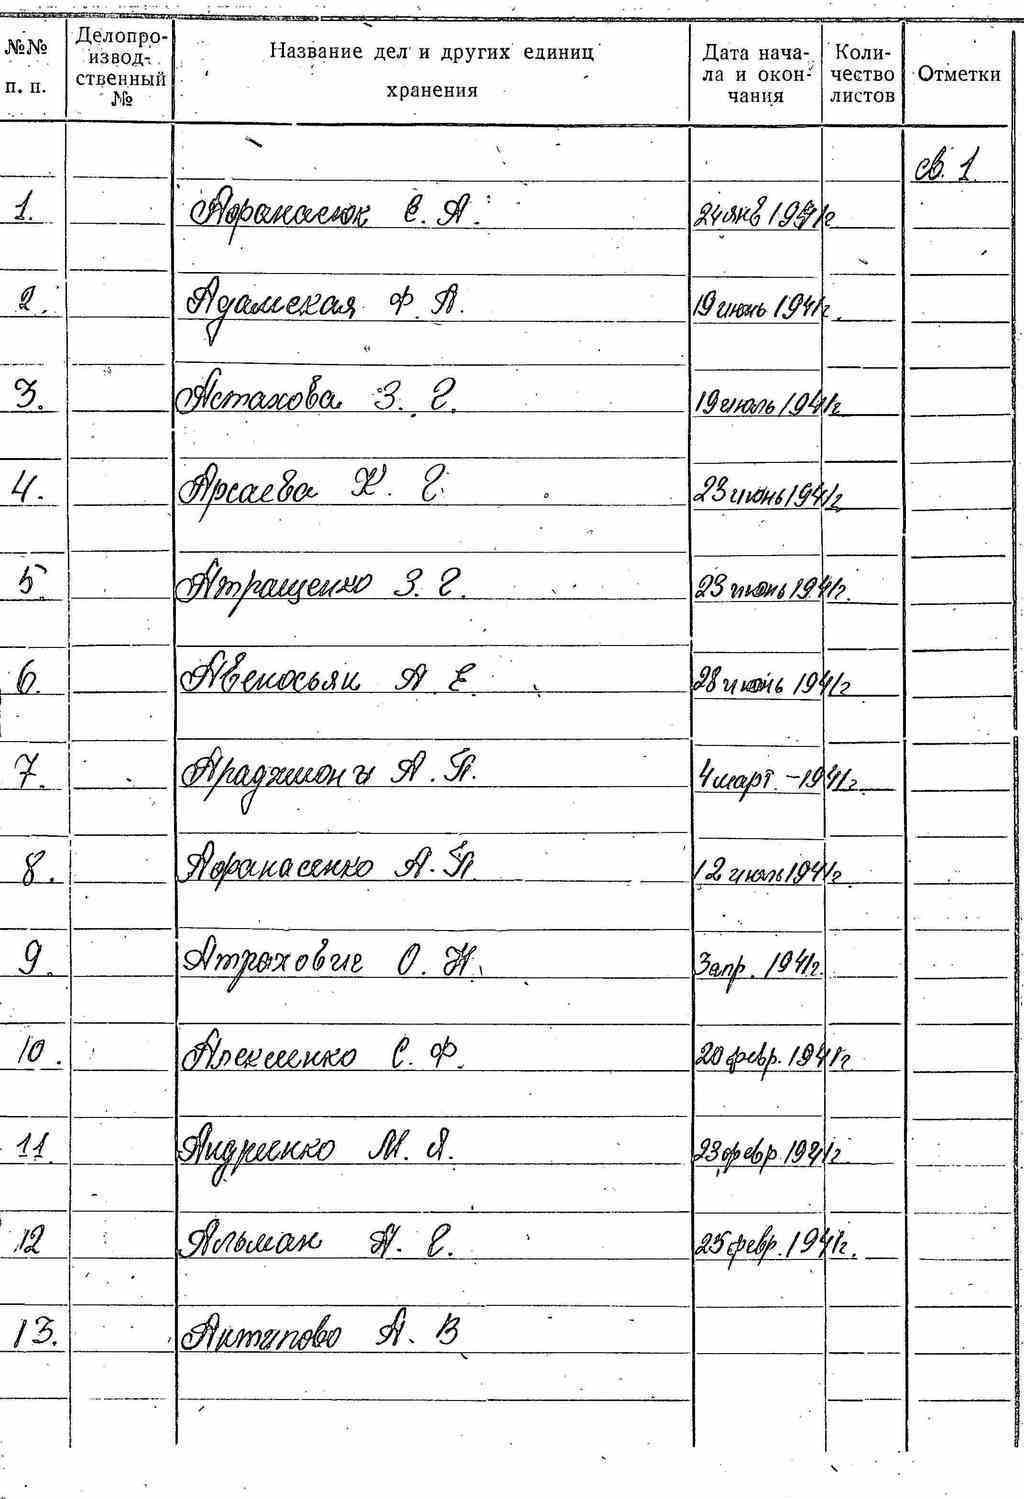 №№ п. п. Делопроизводственный № Название дел и других единиц хранения Дата начала и окончания Количество листов Отметки
св. 1
1. Афанасюк Е. А. 24 янв 1941г
2. Адамская Ф. А. 19 июнь 1941г.
3. Астахова З. Г. 19 июль 1941г
4. Арсаева К. Г. 23 июнь 1941г
5. Атращенко З. Г. 23 июнь 1941г.
6. А. Е. 28 июнь 1941г
7. А. П. 4 март. - 1941г.
8. Афанасенко А. П. 12 июль 1941г
9. Атрахович О. Н. 3 апр. 1941г.
10. Алексеенко С. Ф. 20 февр. 1941г
11. Андриенко М. Я. 23 февр 1941г.
12 Альман А. Г. 25 февр. 1941г.
13. Антипово А. В